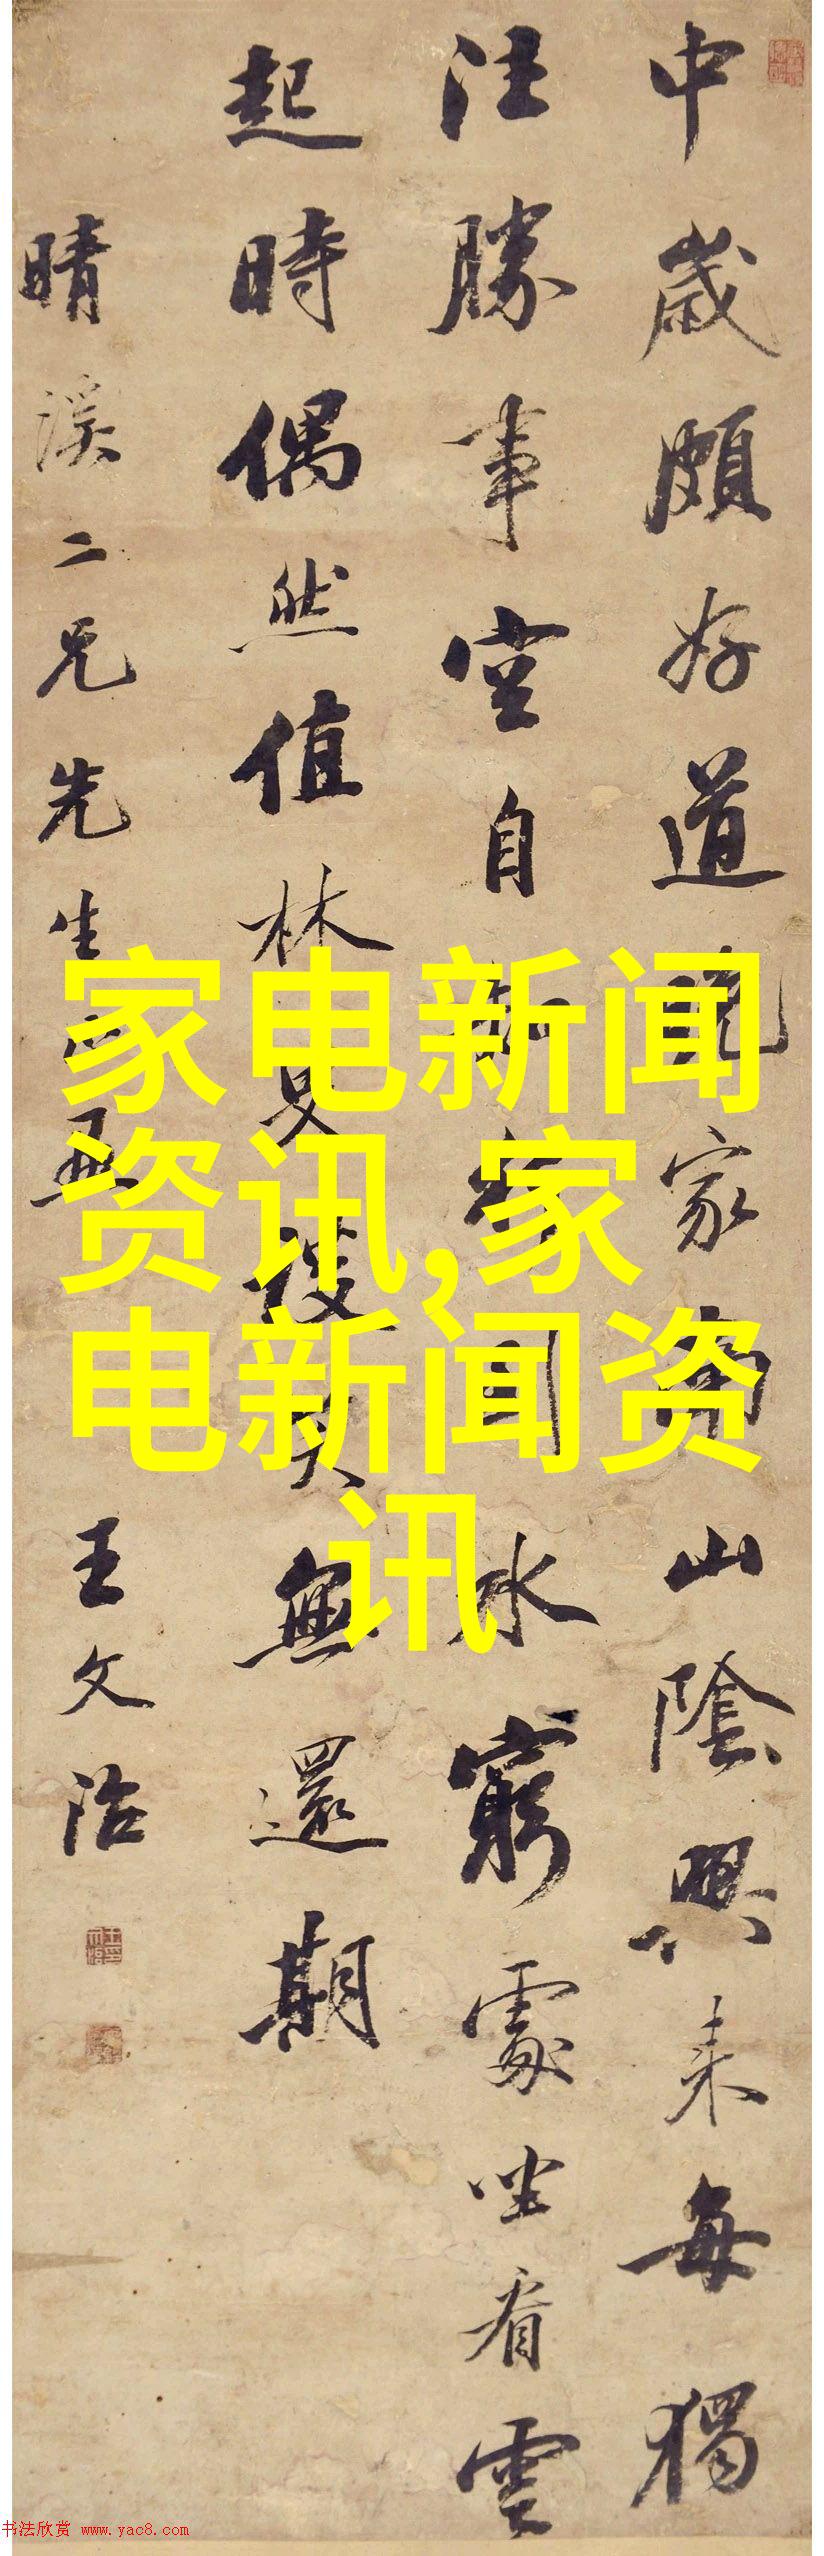 中歲頗好道晚家南山陰興来每獨
往勝事空自知行到水窮處坐看雲
起時偶然值林叟談笑無還期
晴溪二兄先生
王文治
家电新闻
资讯,家
电新闻资
讯
书法欣赏 www.yac8.com